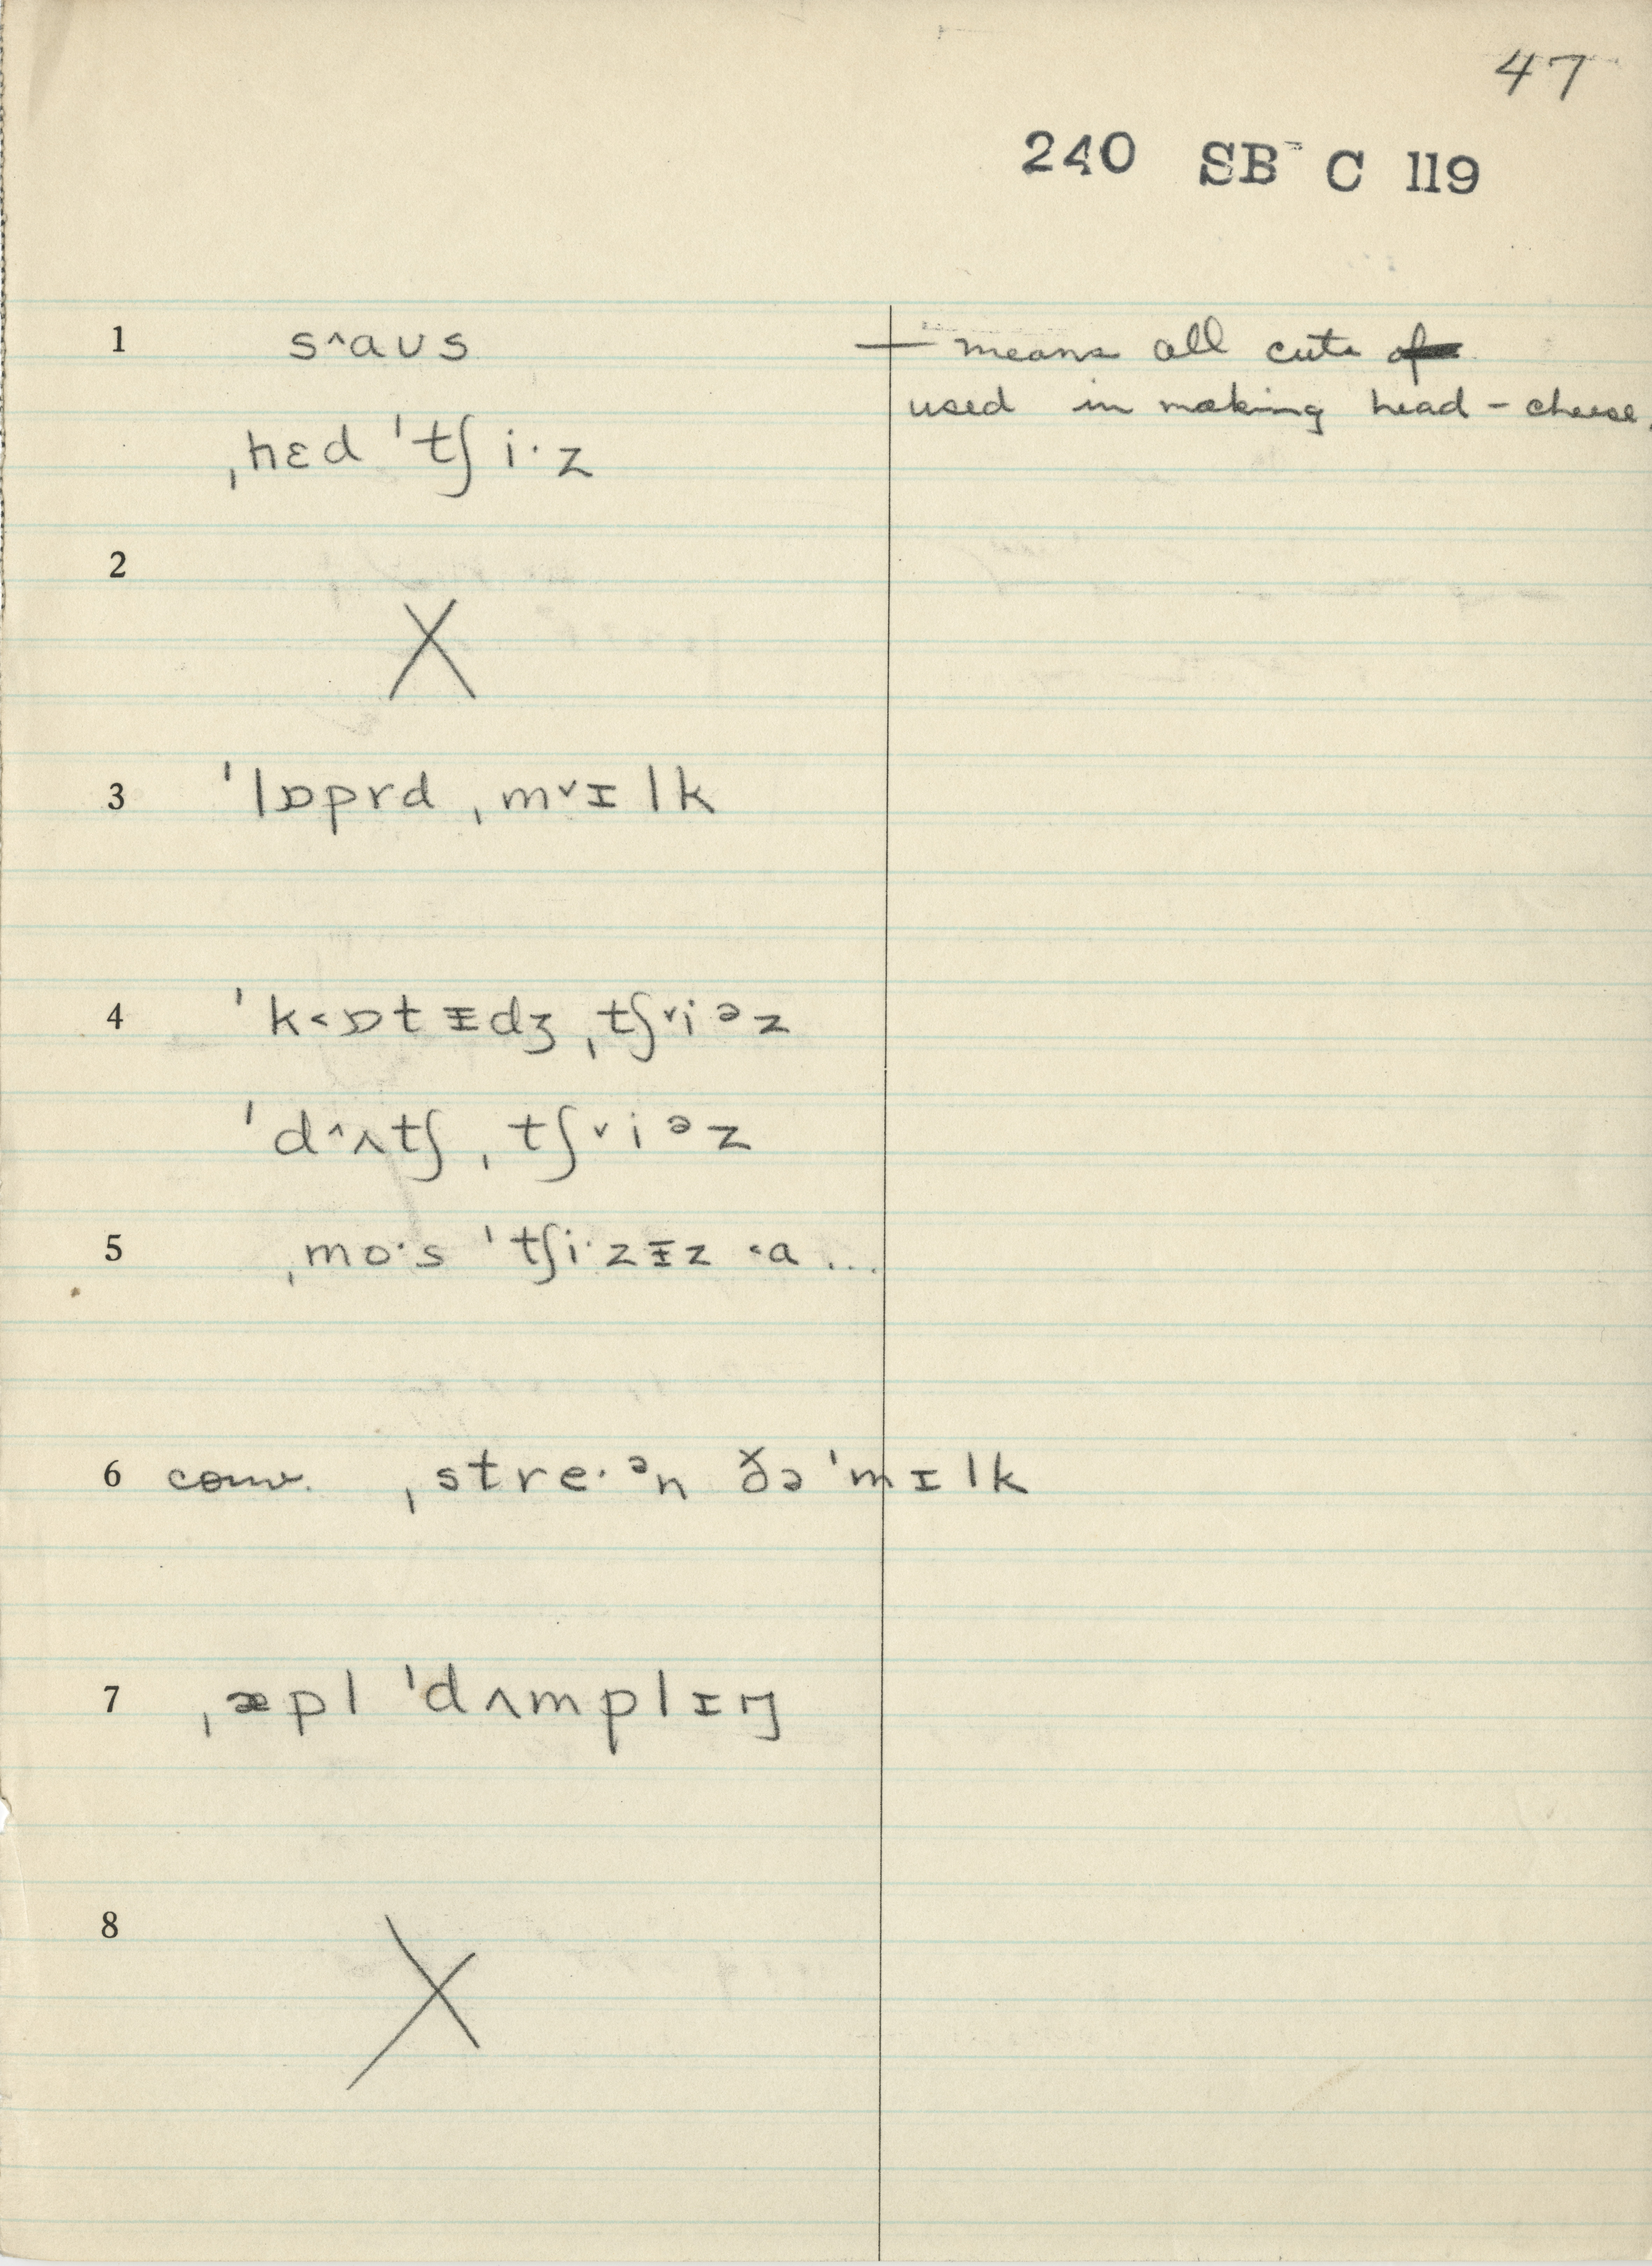 47
240 SB- C 119
1 s^aʊs — means all cuts of
used in making head-cheese.
ˌhɛd ˈtʃi·z
2 X
3 ˈlɒprd ˌmᵛɪlk
4 ˈk˂ɒtᵻdʒ ˌtʃᵛiᵊz
ˈd^ʌtʃ ˌtʃᵛiᵊz
5 ˌmo·s ˈtʃi·zᵻz ˂a...
6 conv. ˌstre·ᵊn ðə ˈmɪlk
7 ˌæpl ˈdʌmplɪŋ
8 X